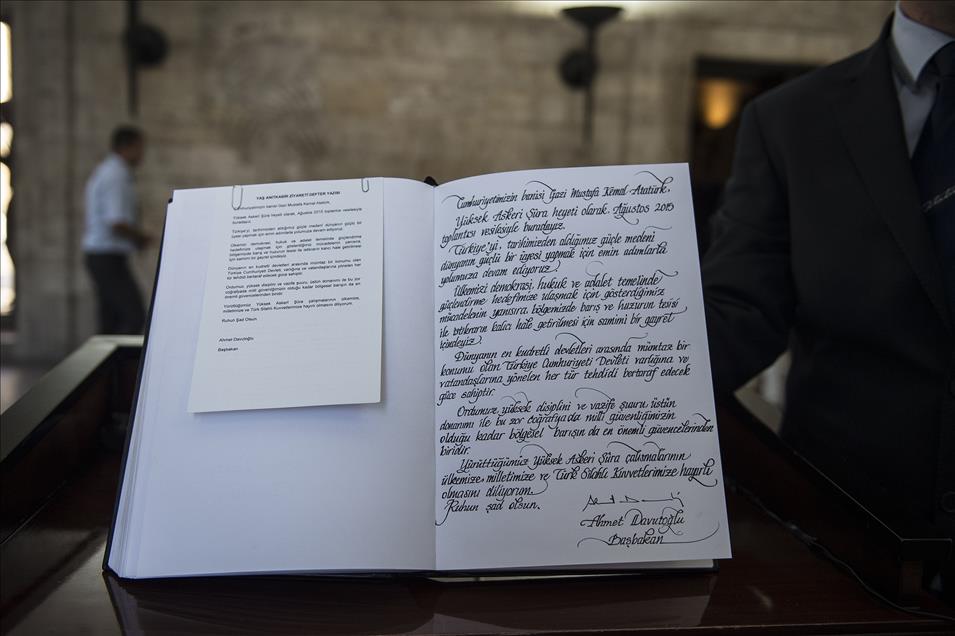 YAŞ ANITKABİR ZİYARETİ DEFTER YAZISI
Cumhuriyetimizin banisi Gazi Mustafa Kemal Atatürk,
Yüksek Askeri Şûra heyeti olarak, Ağustos 2015 toplantısı vesilesiyle
buradayız.
Türkiye'yi, tarihimizden aldığımız güçle medeni dünyanın güçlü bir
üyesi yapmak için emin adımlarla yolumuza devam ediyoruz.
Ülkemizi demokrasi, hukuk ve adalet temelinde güçlendirme
hedefimize ulaşmak için gösterdiğimiz mücadelenin yanısıra,
bölgemizde barış ve huzurun tesisi ile istikrarın kalıcı hale getirilmesi
için samimi bir gayret içindeyiz.
Dünyanın en kudretli devletleri arasında mümtaz bir konumu olan
Türkiye Cumhuriyeti Devleti, varlığına ve vatandaşlarına yönelen her
tür tehdidi bertaraf edecek güce sahiptir.
Ordumuz, yüksek disiplini ve vazife şuuru, üstün donanımı ile bu zor
coğrafyada milli güvenliğimizin olduğu kadar bölgesel barışın da en
önemli güvencelerinden biridir.
Yürüttüğümüz Yüksek Askeri Şûra çalışmalarının ülkemize,
milletimize ve Türk Silahlı Kuvvetlerimize hayırlı olmasını diliyorum.
Ruhun Şad Olsun
Ahmet Davutoğlu
Başbakan
Cumhuriyetimizin banisi Gazi Mustafa Kemal Atatürk,
Yüksek Askeri Şûra heyeti olarak, Ağustos 2015
toplantısı vesilesiyle buradayız.
Türkiye'yi, tarihimizden aldığımız güçle medeni
dünyanın güçlü bir üyesi yapmak için emin adımlarla
yolumuza devam ediyoruz.
Ülkemizi demokrasi, hukuk ve adalet temelinde
güçlendirme hedefimize ulaşmak için gösterdiğimiz
mücadelenin yanısıra, bölgemizde barış ve huzurun tesisi
ile istikrarın kalıcı hale getirilmesi için samimi bir gayret
içindeyiz.
Dünyanın en kudretli devletleri arasında mümtaz bir
konumu olan Türkiye Cumhuriyeti Devleti varlığına ve
vatandaşlarına yönelen her tür tehdidi bertaraf edecek
güce sahiptir.
Ordumuz yüksek disiplini ve vazife şuuru üstün
donanımı ile bu zor coğrafyada milli güvenliğimizin
olduğu kadar bölgesel barışın da en önemli güvencelerinden
biridir.
Yürüttüğümüz Yüksek Askeri Şûra çalışmalarının
ülkemize, milletimize ve Türk Silahlı Kuvvetlerimize hayırlı
olmasını diliyorum.
Ruhun şad olsun.
Ahmet Davutoğlu
Başbakan